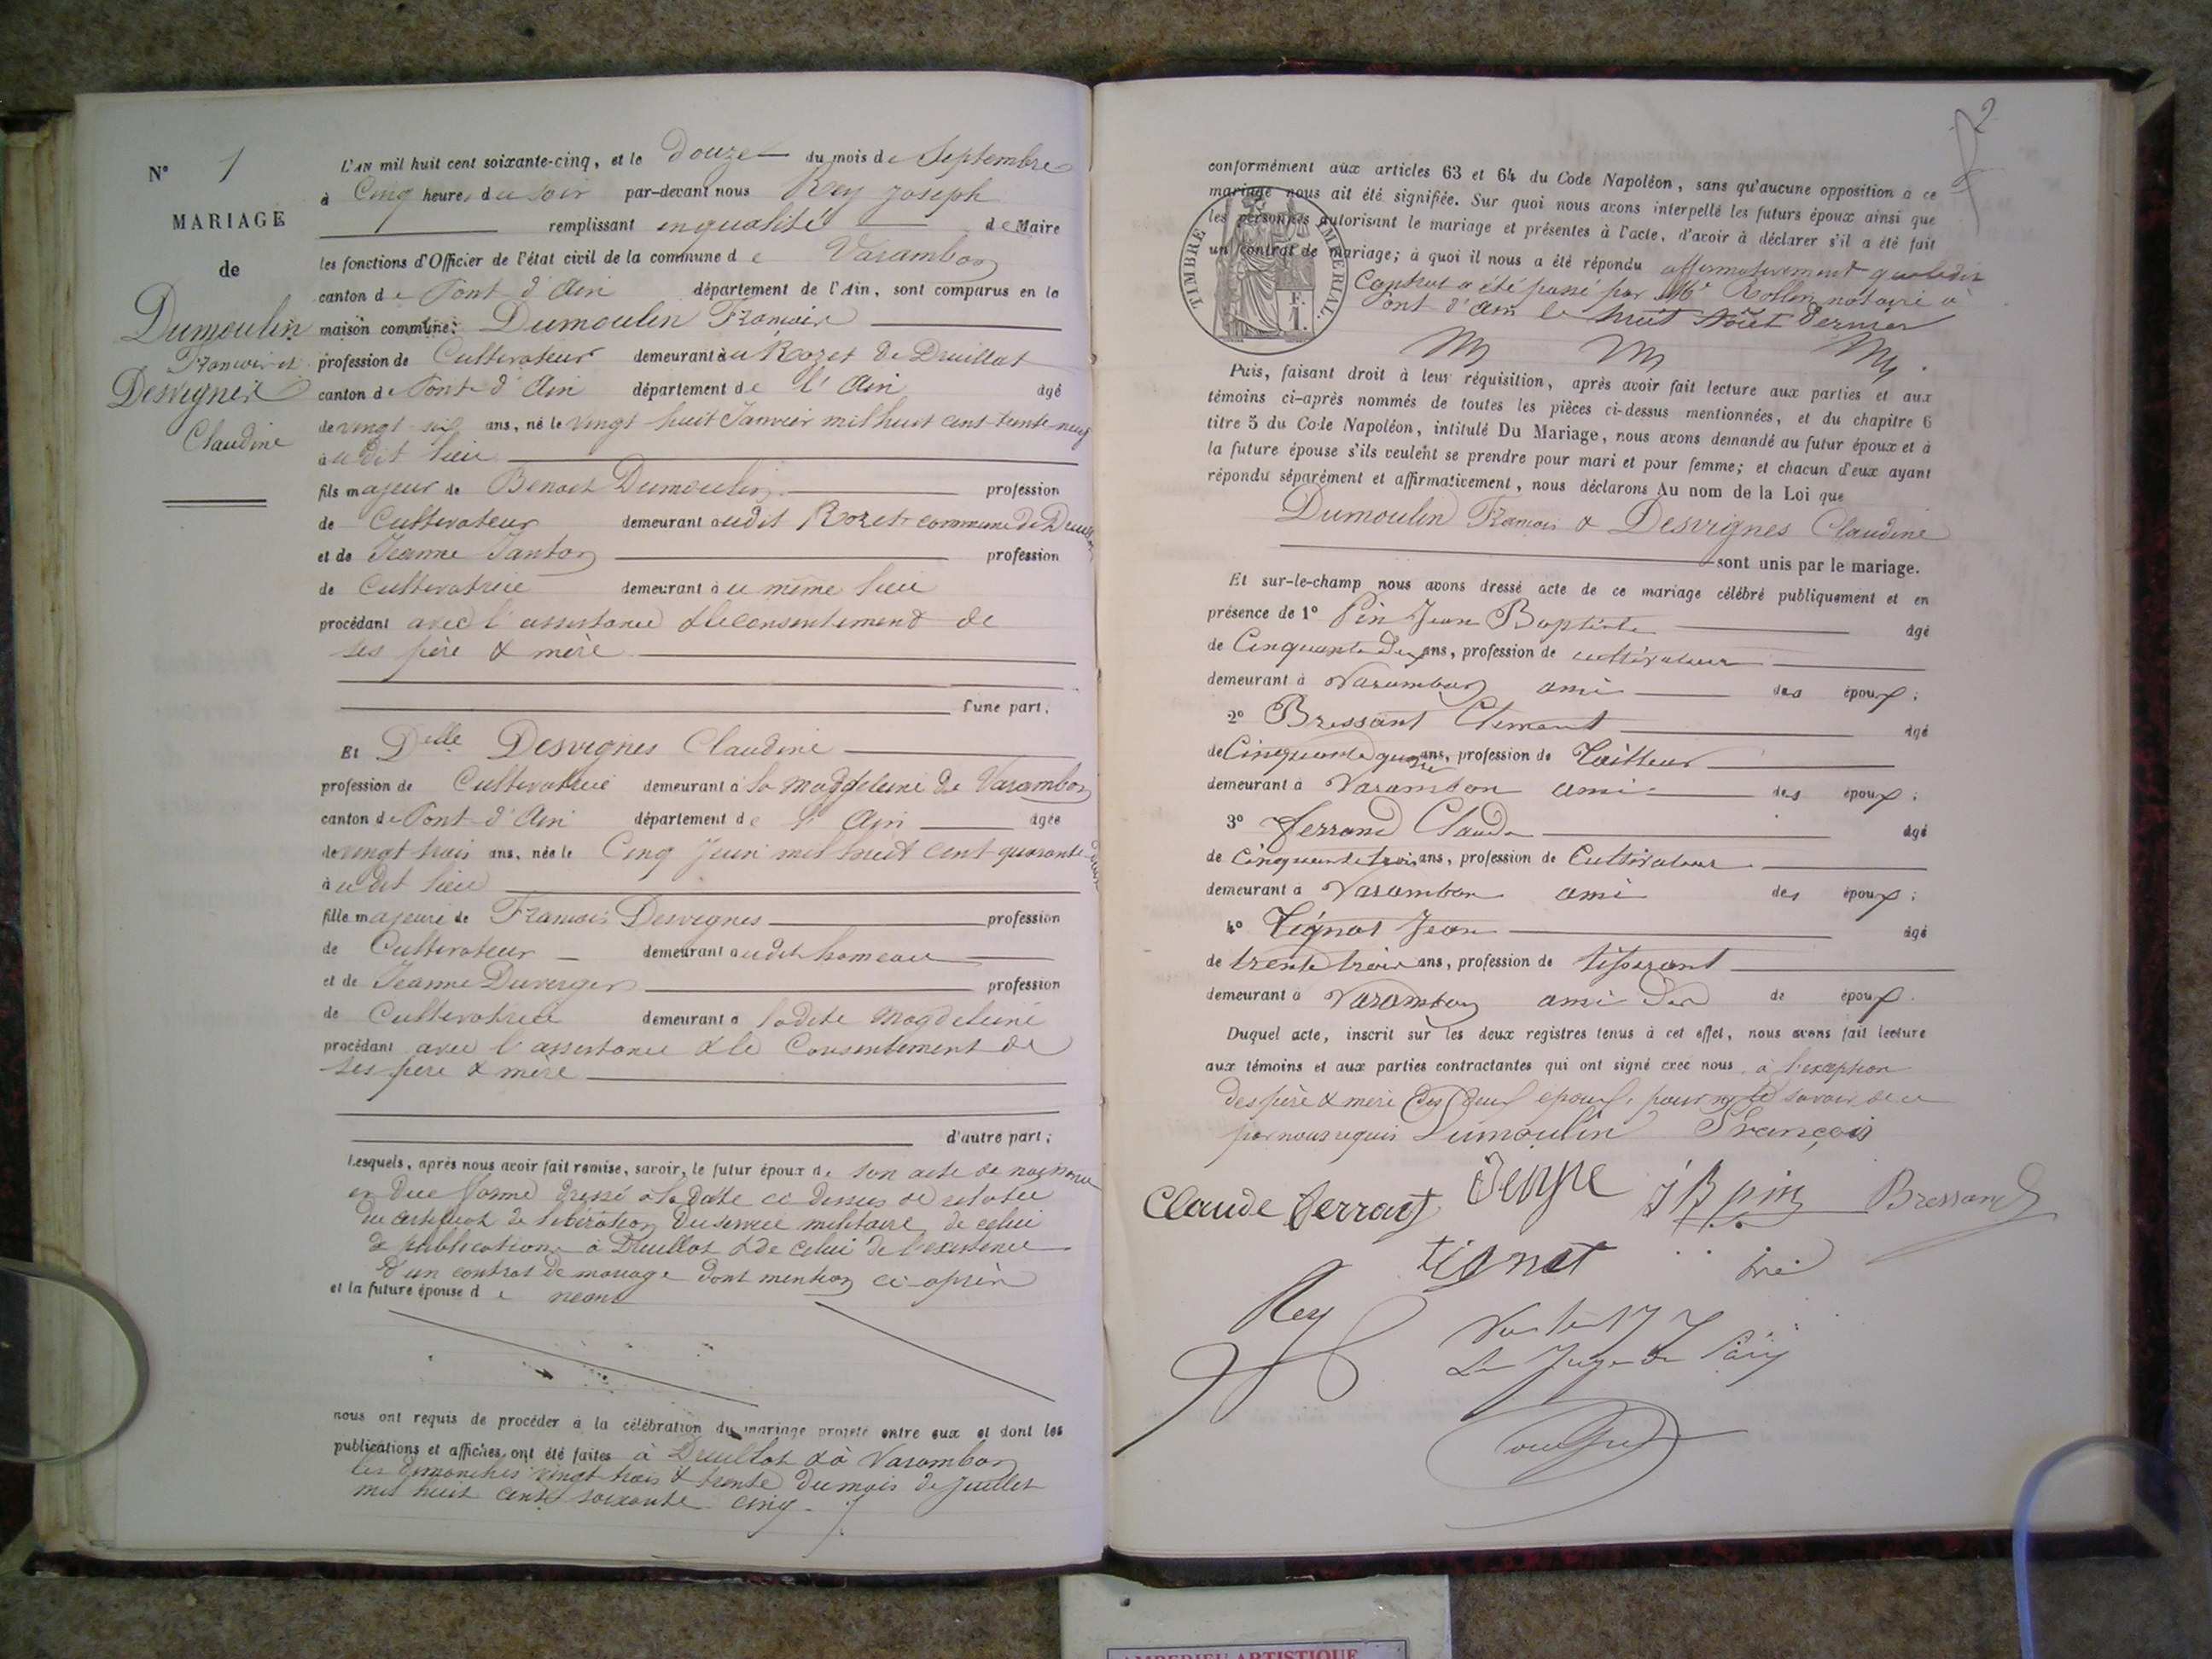 N° 1
MARIAGE
de
Dumoulin
François et
Desvignes
Claudine
L'AN mil huit cent soixante-cinq, et le Douze du mois de Septembre
à Cinq heures du soir par-devant nous Rey Joseph
remplissant en qualité de Maire
les fonctions d'Officier de l'état civil de la commune de Varambon
canton de Pont d'Ain département de l'Ain, sont comparus en la
maison commune: Dumoulin François
profession de Cultivateur demeurant au Rozet de Druillat
canton de Pont d'Ain département de l'Ain âgé
de vingt six ans, né le vingt huit Janvier mil huit cent trente neuf
audit lieu
fils majeur de Benoit Dumoulin profession
de Cultivateur demeurant audit Rozet commune de Druillat
et de Jeanne Janton profession
de Cultivatrice demeurant au même lieu
procédant avec l'assistance & le consentement de
ses père & mère
d'une part;
Et Delle Desvignes Claudine
profession de Cultivatrice demeurant à la Magdeleine de Varambon
canton de Pont d'Ain département de l'Ain âgée
de vingt trois ans, née le Cinq Juin mil huit cent quarante deux
audit lieu
fille majeure de François Desvignes profession
de Cultivateur demeurant audit hameau
et de Jeanne Duverger profession
de Cultivatrice demeurant à ladite Magdeleine
procédant avec l'assistance & le Consentement de
ses père & mère
d'autre part;
Lesquels, après nous avoir fait remise, savoir, le futur époux de son acte de naissance
en due forme dressé à la date ci dessus relatée
du certificat de libération du service militaire, de celui
de publications à Druillat & de celui de l'existence
d'un contrat de mariage dont mention ci-après
et la future épouse de néant
nous ont requis de procéder à la célébration du mariage projeté entre eux et dont les
publications et affiches ont été faites à Druillat & à Varambon
les dimanches vingt trois & trente du mois de Juillet
mil huit cent soixante cinq
2
conformément aux articles 63 et 64 du Code Napoléon, sans qu'aucune opposition à ce
mariage nous ait été signifiée. Sur quoi nous avons interpellé les futurs époux ainsi que
les personnes autorisant le mariage et présentes à l'acte, d'avoir à déclarer s'il a été fait
un contrat de mariage; à quoi il nous a été répondu affirmativement que ledit
Contrat a été passé par Me Rollin notaire à
Pont d'Ain le huit Août dernier
TIMBRE IMPERIAL.
F.
1.
Puis, faisant droit à leur réquisition, après avoir fait lecture aux parties et aux
témoins ci-après nommés de toutes les pièces ci-dessus mentionnées, et du chapitre 6
titre 5 du Code Napoléon, intitulé Du Mariage, nous avons demandé au futur époux et à
la future épouse s'ils veulent se prendre pour mari et pour femme; et chacun d'eux ayant
répondu séparément et affirmativement, nous déclarons Au nom de la Loi que
Dumoulin François & Desvignes Claudine
sont unis par le mariage.
Et sur-le-champ nous avons dressé acte de ce mariage célébré publiquement et en
présence de 1° Pin Jean Baptiste âgé
de Cinquante deux ans, profession de cultivateur
demeurant à Varambon ami des époux;
2° Bressand Clement âgé
de Cinquante quatre ans, profession de Tailleur
demeurant à Varambon ami des époux;
3° Ferrand Claude âgé
de Cinquante trois ans, profession de Cultivateur
demeurant à Varambon ami des époux;
4° Tignat Jean âgé
de trente trois ans, profession de tisserant
demeurant à Varambon ami des de époux.
Duquel acte, inscrit sur les deux registres tenus à cet effet, nous avons fait lecture
aux témoins et aux parties contractantes qui ont signé avec nous à l'exception
des père & mère des deux époux, pour ne le savoir de ce
par nous requis Dumoulin François
Claude Ferrand JB pin Bressand
tignat
Rey
Vu le 17
Le Juge de Paix
AMBERIEU ARTISTIQUE